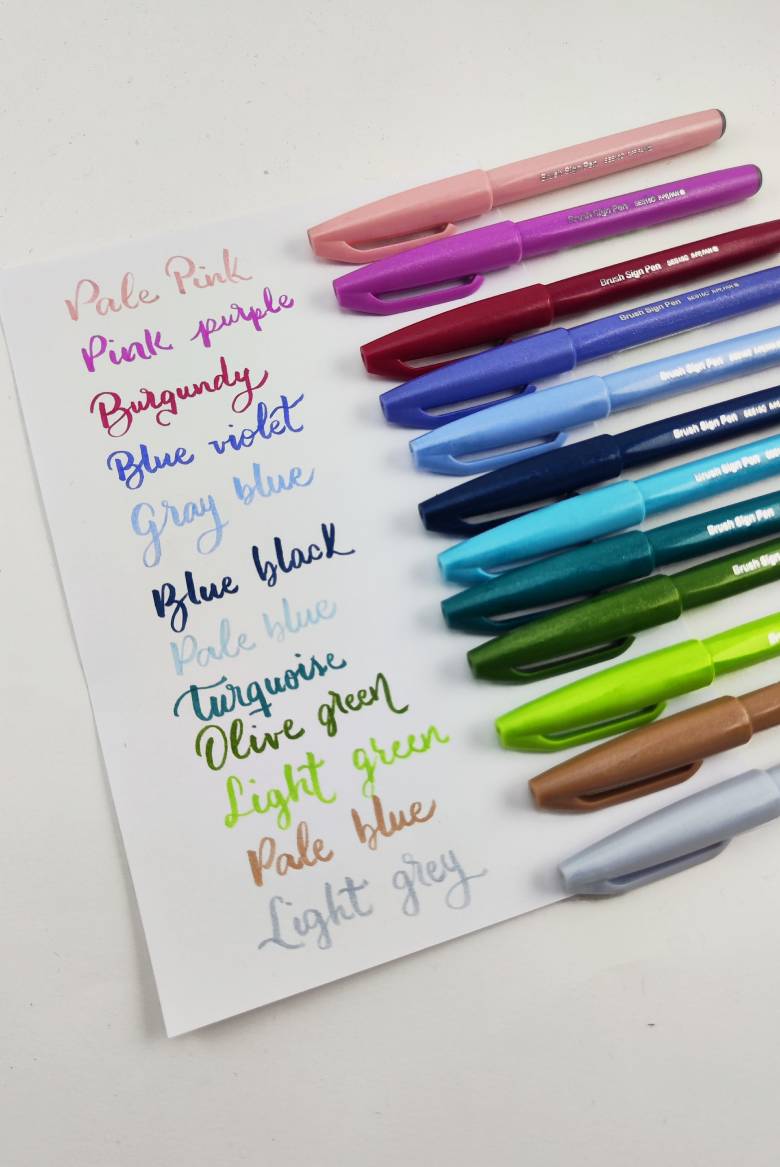 Pale Pink
Pink purple
Burgundy
Blue violet
Gray blue
Blue black
Pale blue
Turquoise
Olive green
Light green
Pale blue
Light grey
Brush Sign Pen
Brush Sign Pen
Brush Sign Pen
Brush Sign Pen
Brush Sign Pen
Brush Sign Pen
Brush Sign Pen
Brush Sign Pen
Brush Sign